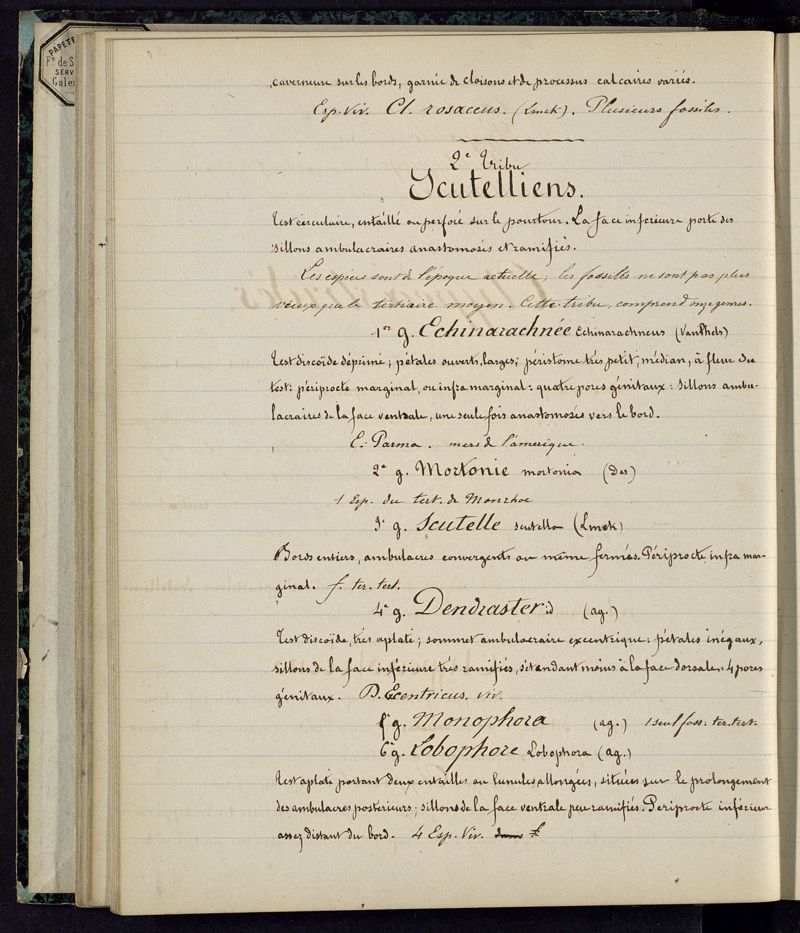 PAPETE
Fe. de S
SERV
Gale
caverneuse sur les bords, garnie de cloisons et de processus calcaires variés.
Esp. Viv. Cl. rosaceus. (Lmck). Plusieurs fossiles.
2e Tribu
Scutelliens.
Test circulaire, entaillé ou perforé sur le pourtour. La face inferieure porte des
sillons ambulacraires anastomosés et ramifiés.
Les espèces sont de l'époque actuelle; les fossiles ne sont pas plus
vieux que le tertiaire moyen. Cette tribu, comprend onze genres.
1er g. Echinarachnée Echinarachneus (VanPhels)
Test discoïde déprimé; pétales ouverts, larges; péristome très petit, médian, à fleur du
test: périprocte marginal, ou infra marginal: quatre pores génitaux: Sillons ambu-
lacraires de la face ventrale, une seule fois anastomosés vers le bord.
E. Parma. mers de l'amerique.
2e g. Mortonie mortonia (Des)
1 Esp. du tert. de Monrhoe
3e g. Scutelle scutella (Lmck)
Bords entiers, ambulacres convergents ou même fermés. Périprocte infra mar-
ginal. f. ter. tert.
4e g. Dendraster id (ag.)
Test discoïde, très aplati; sommet ambulacraire excentrique: pétales inégaux,
sillons de la face inférieure très ramifiés, s'étendant moins à la face dorsale. 4 pores
génitaux. D. Excentricus. viv.
5e g. Monophora (ag.) 1 seul foss. ter. tert.
6e g. Lobophore Lobophora (ag.)
Test aplati portant deux entailles ou lunules allongées, situées sur le prolongement
des ambulacres postérieurs; sillons de la face ventrale peu ramifiés. Periprocte inférieur
assez distant du bord. 4 Esp. Viv. dans f